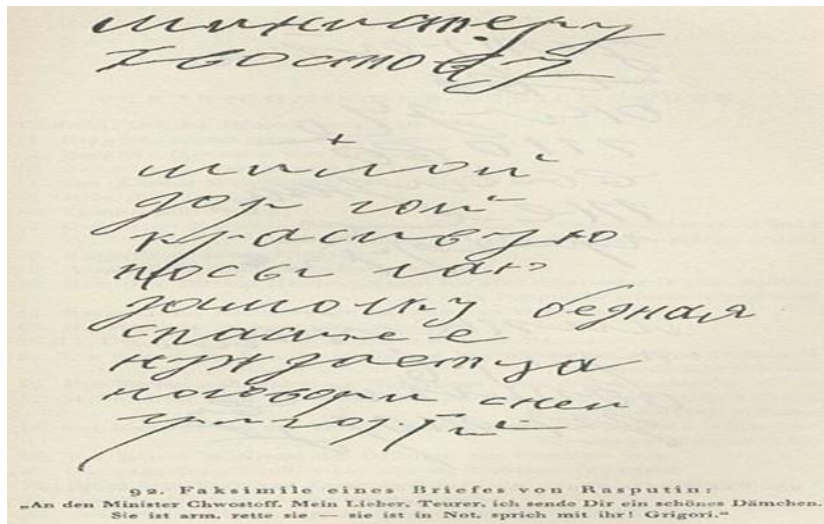 министеру
хвостову
+
милой
дорогой
красивую
посылаю
дамочку бедная
спаси ее
нуждаетца
поговори с ней
григорий
92. Faksimile eines Briefes von Rasputin:
„An den Minister Chwostoff. Mein Lieber, Teurer, ich sende Dir ein schönes Dämchen.
Sie ist arm, rette sie — sie ist in Not, sprich mit ihr! Grigori.“